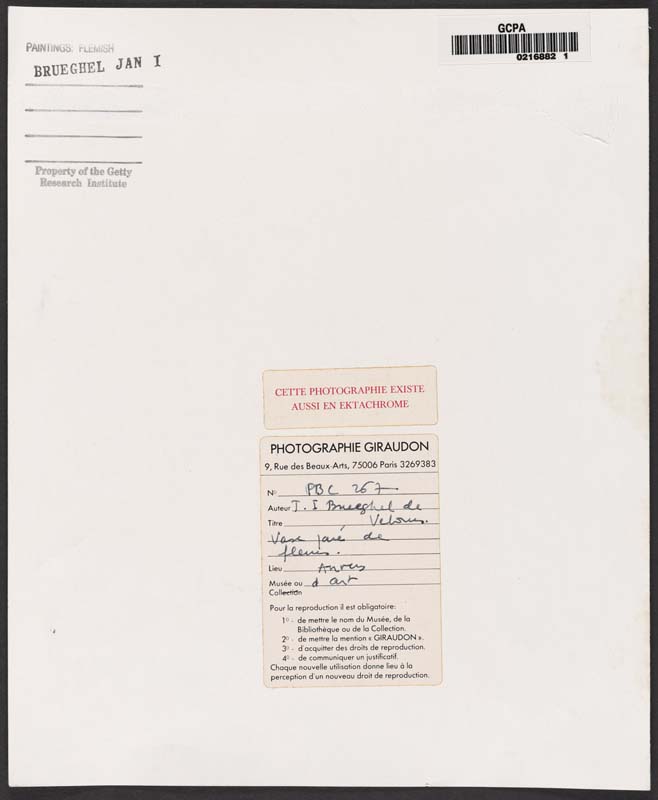 PAINTINGS: FLEMISH
BRUEGHEL JAN I
Property of the Getty
Research Institute
GCPA
0216882 1
CETTE PHOTOGRAPHIE EXISTE
AUSSI EN EKTACHROME
PHOTOGRAPHIE GIRAUDON
9, Rue des Beaux-Arts, 75006 Paris 3269383
No PBC 267
Auteur J. I Brueghel de
Titre Velours.
Vase paré de
fleurs.
Lieu Anvers
Musée ou d art
Collection
Pour la reproduction il est obligatoire:
1o - de mettre le nom du Musée, de la
Bibliothèque ou de la Collection.
2o - de mettre la mention « GIRAUDON ».
3o - d'acquitter des droits de reproduction.
4o - de communiquer un justificatif.
Chaque nouvelle utilisation donne lieu à la
perception d'un nouveau droit de reproduction.